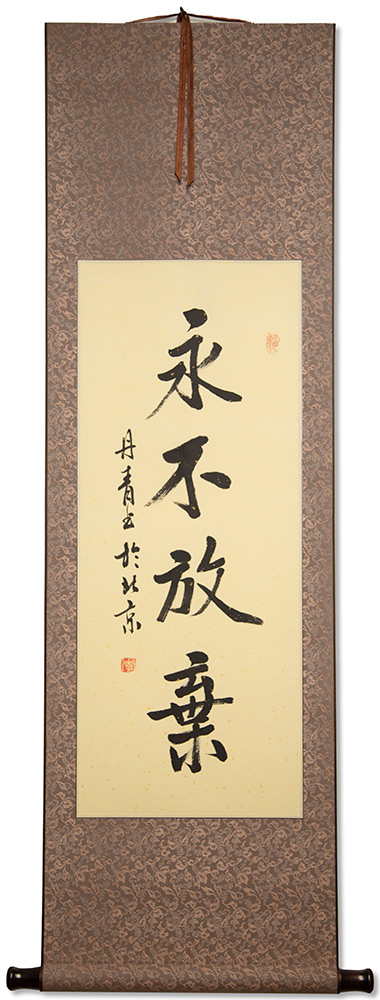 永不放棄
丹青書於北京